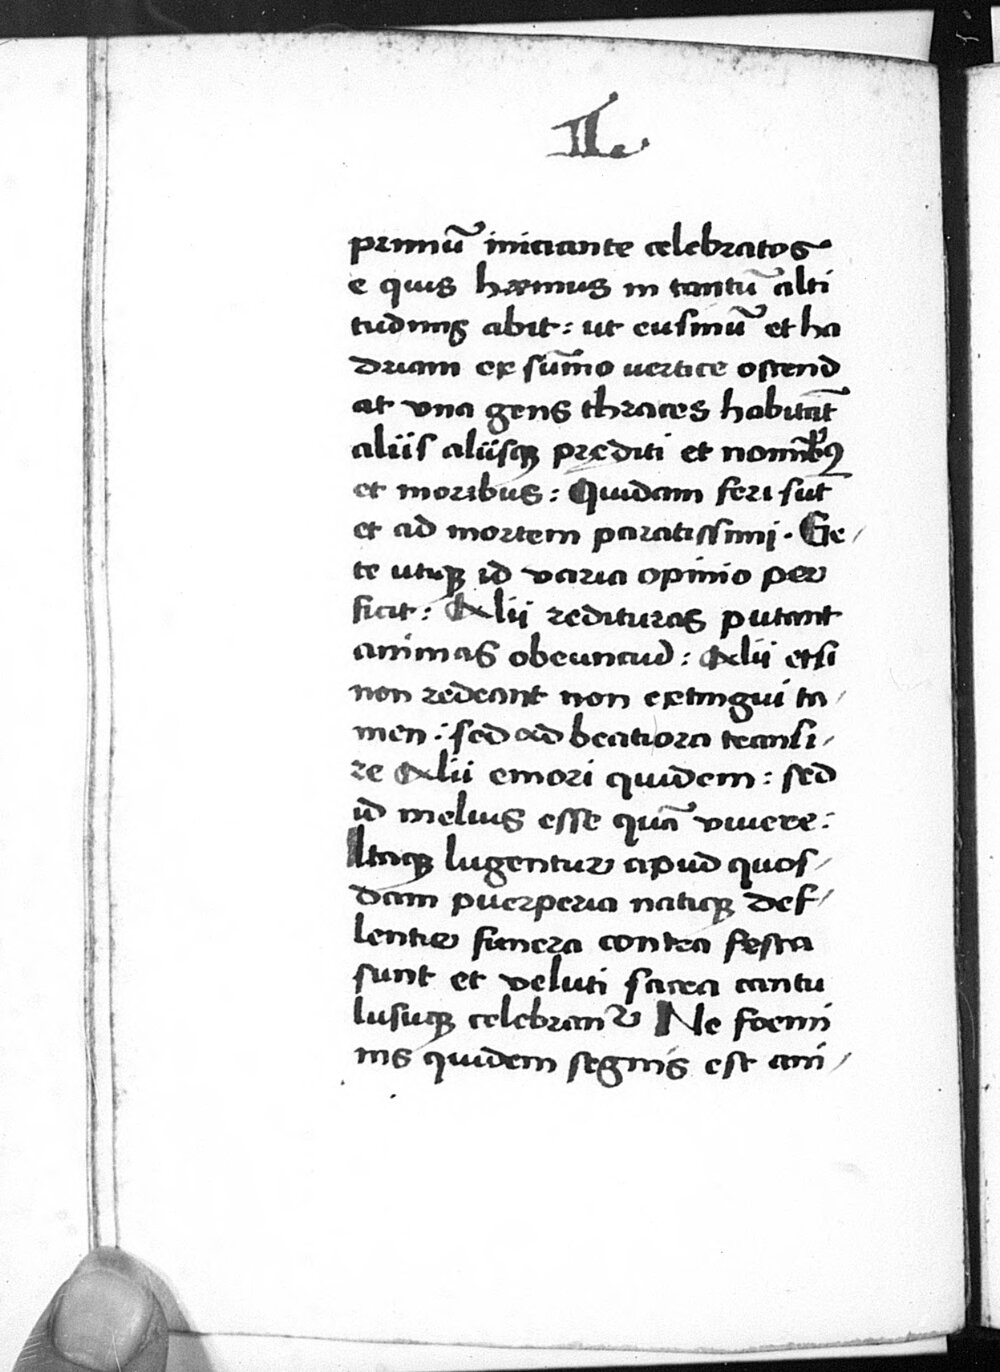 II.
primū iniciante celebratos
e quis hæmus in tantū alti
tudinis abit: ut eusinū et ha
driam ex sūmo uertice ostend
at vna gens thraces habitāt
aliis aliisqꝫ prediti et nomībꝰ
et moribus: Quidam feri sūt
et ad mortem paratissimi. Ge/
te utiqꝫ id varia opinio per
ficit: Alii redituras putant
animas obeuntiū: Alii etsi
non redeant non extingui ta/
men: sed ad beatiora transi/
re Alii emori quidem: sed
id melius esse quā viuere:
Itaqꝫ lugentur apud quos/
dam puerperia natiqꝫ def/
lentur funera contra festa
sunt et veluti sacra cantu
lusuqꝫ celebrant᷑ Ne foemi
nis quidem segnis est ani/